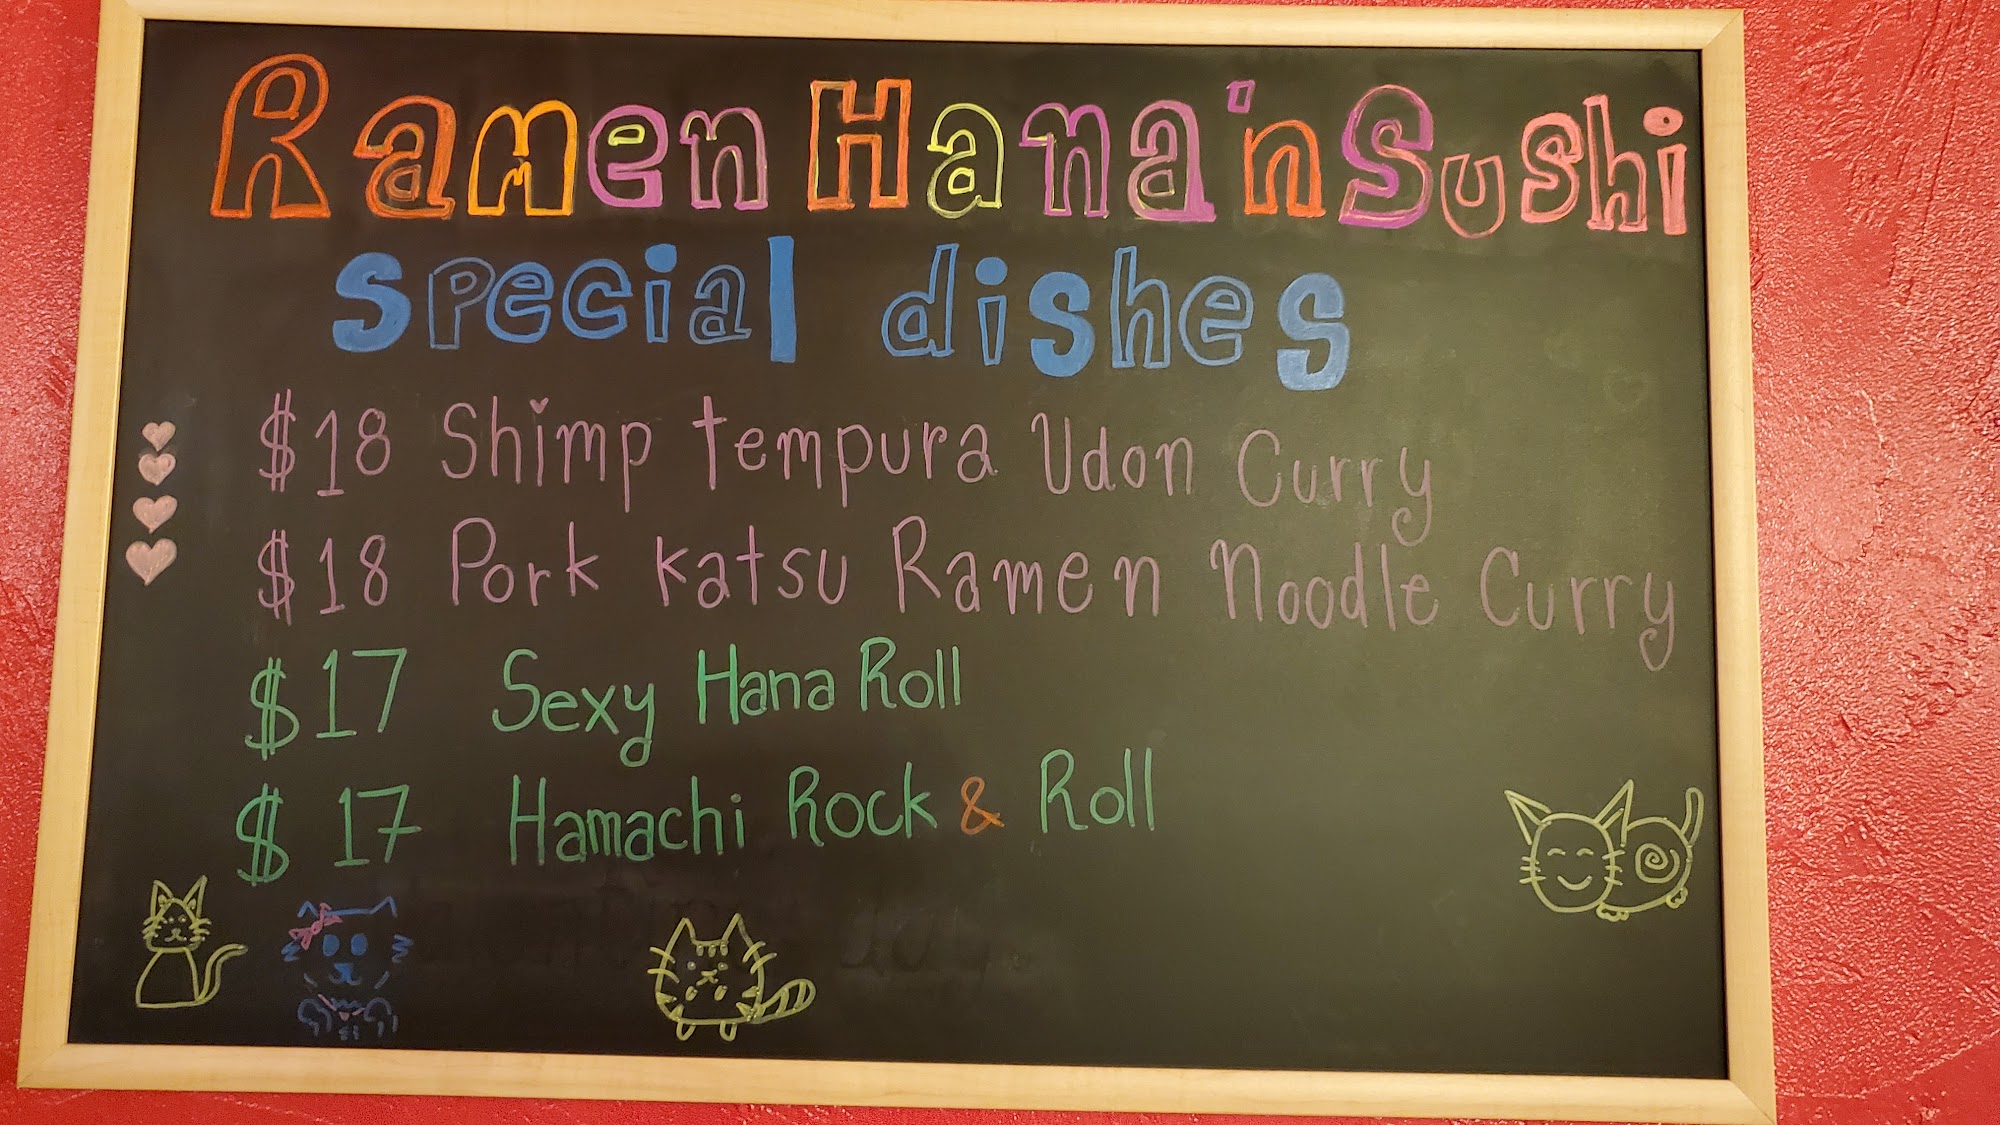 Ramen Hana 'n Sushi
special dishes
$18 Shimp tempura Udon Curry
$18 Pork Katsu Ramen Noodle Curry
$17 Sexy Hana Roll
$17 Hamachi Rock & Roll